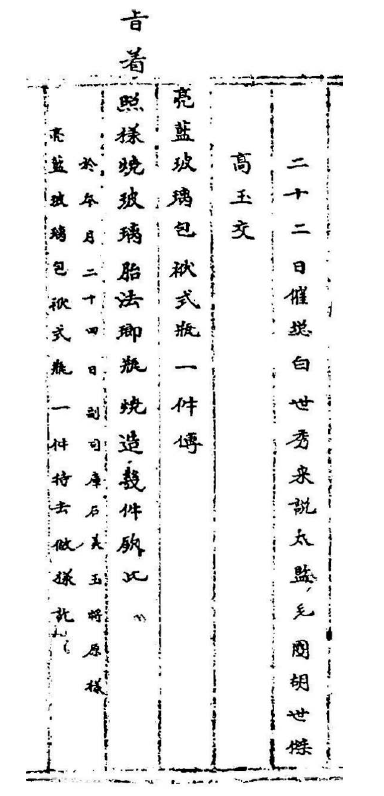 二十二日催總白世秀来說太監毛團胡世傑
高玉交
亮藍玻璃包袱式瓶一件傳
旨着照樣燒玻璃胎法瑯瓶燒造幾件欽此
於本月二十四日副司庫石美玉將原樣
亮藍玻璃包袱式瓶一件持去做樣訖